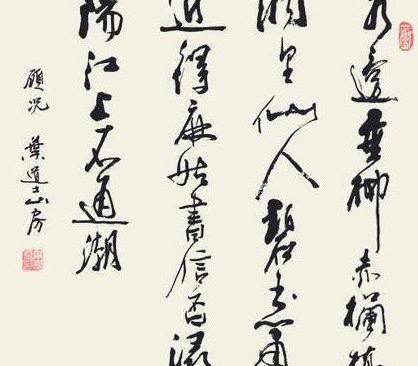 水邊垂柳赤欄橋
洞里仙人碧玉簫
近得麻姑書信否潯
陽江上不通潮
顧况 葉道士山房